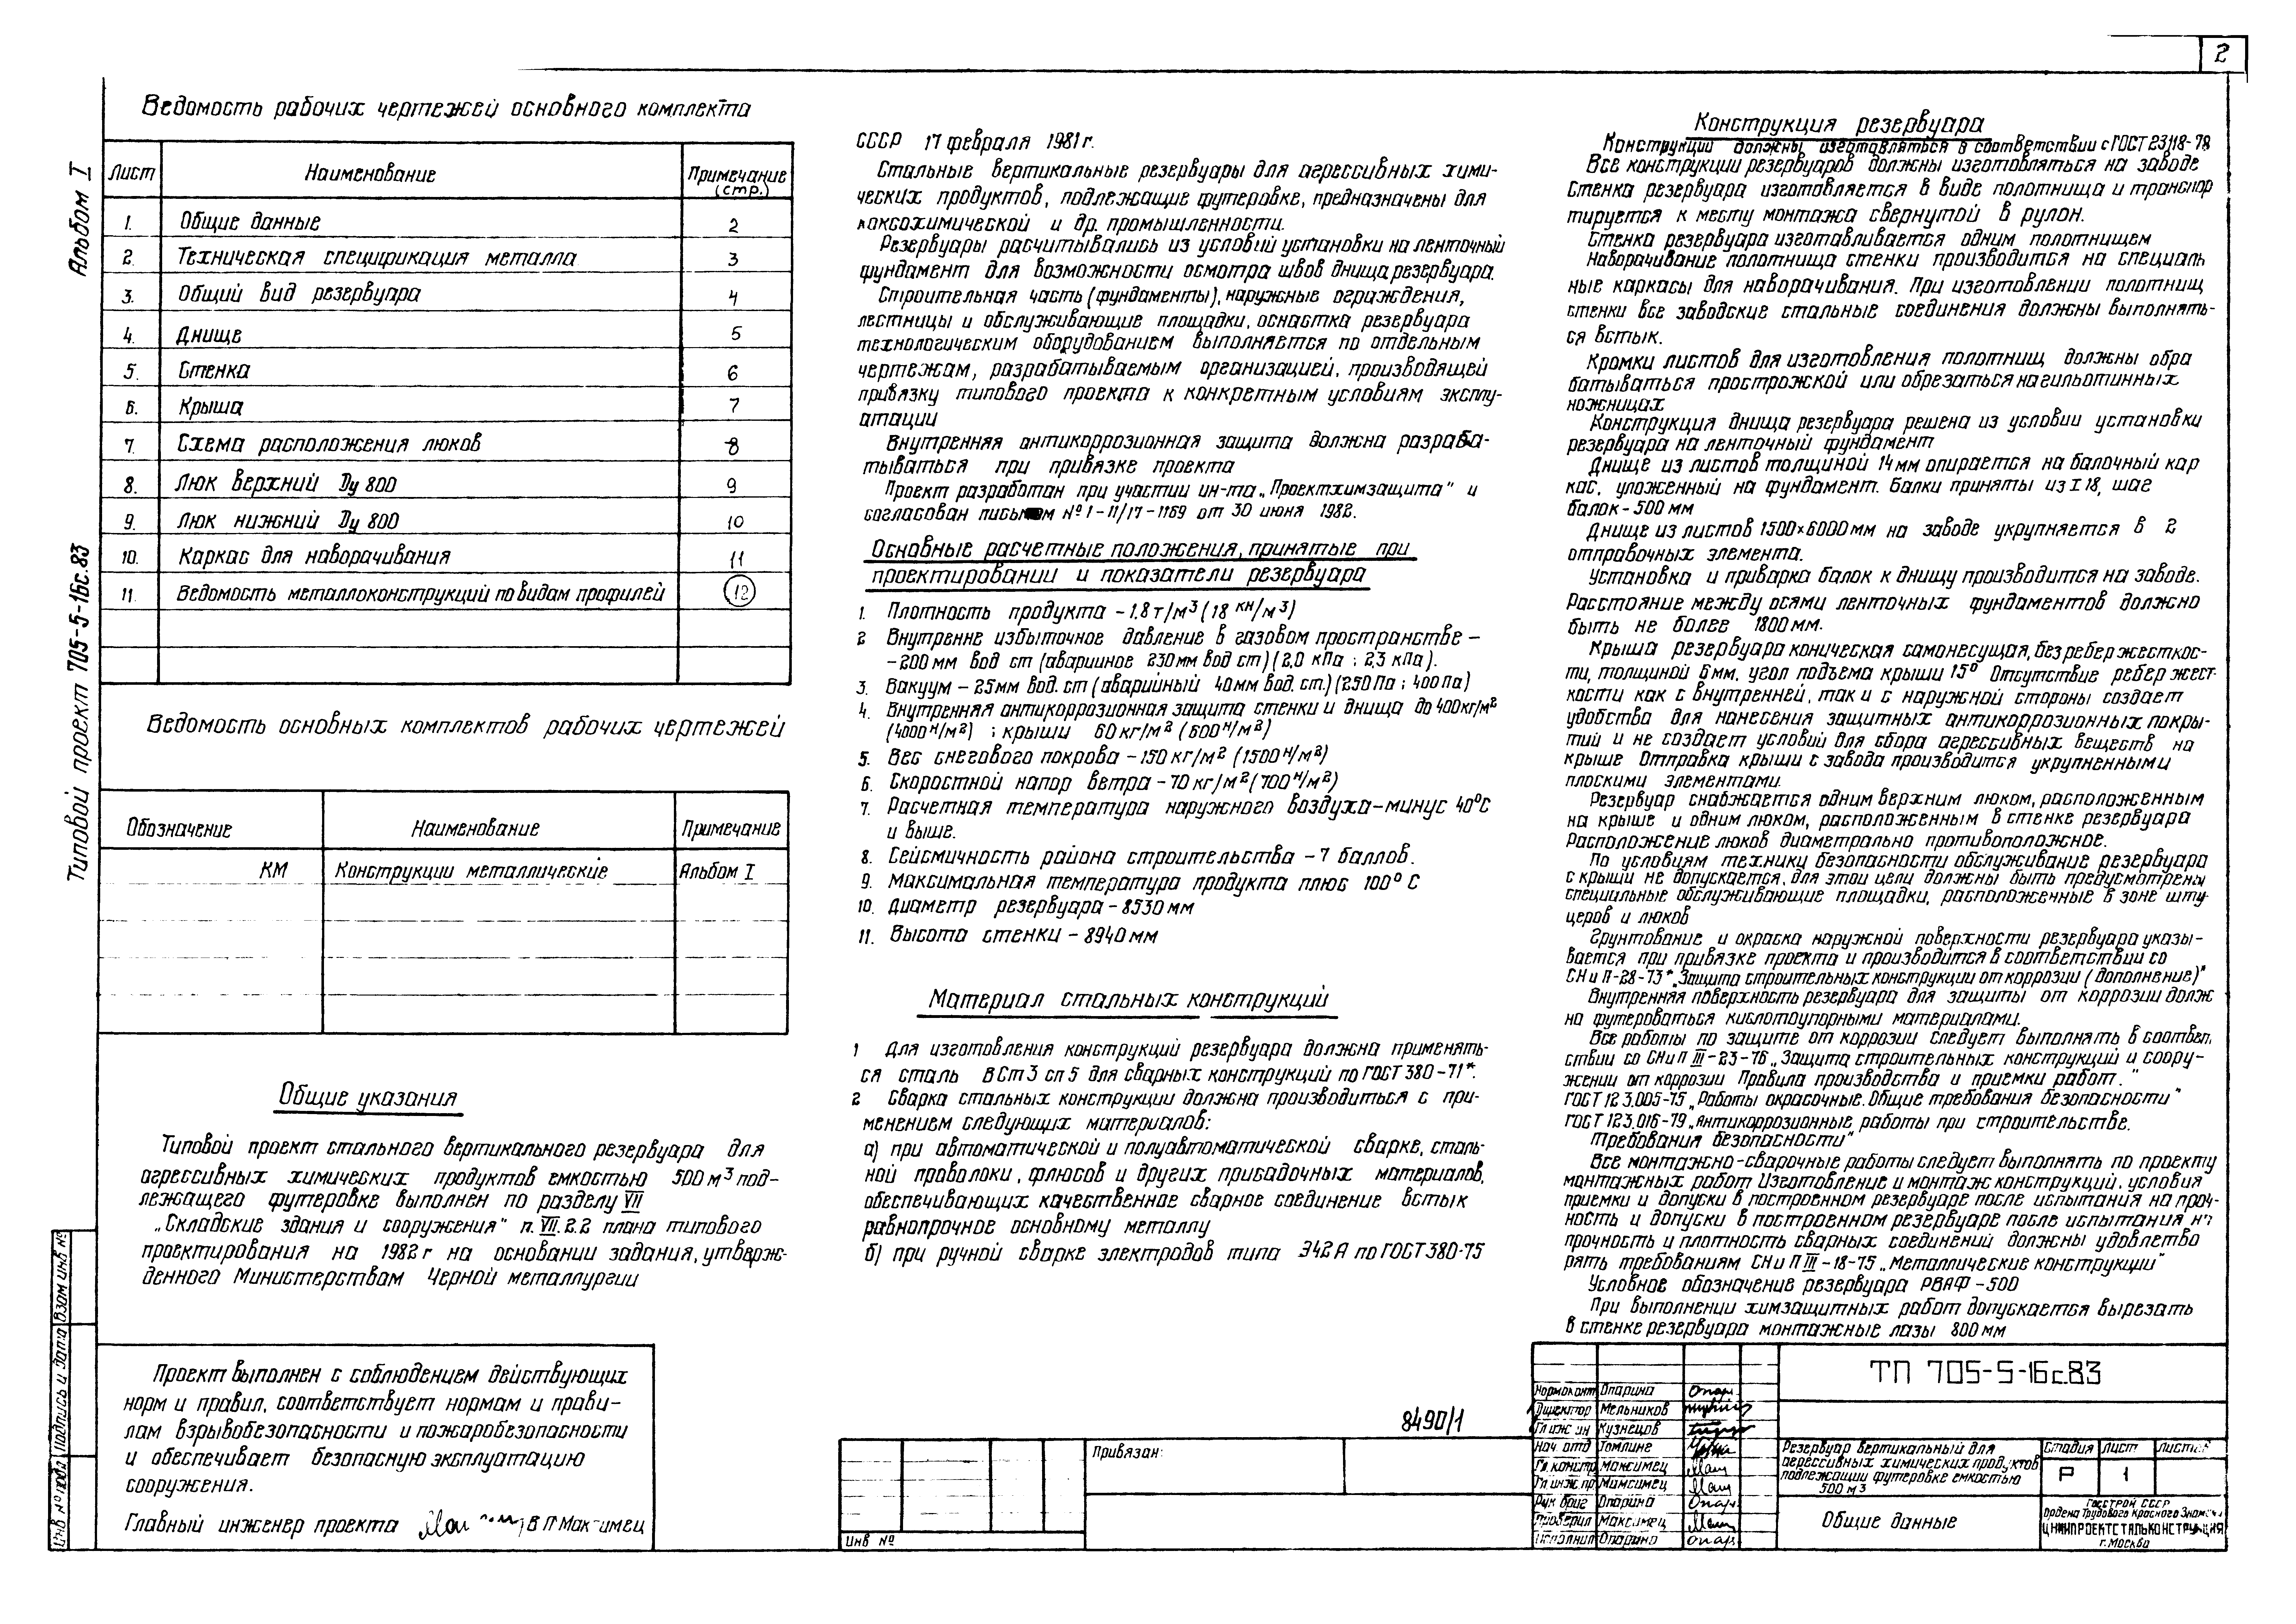 2
Альбом I
Типовой проект 705-5-16с.83
Ведомость рабочих чертежей основного комплекта
Лист Наименование Примечание (стр.)
1. Общие данные 2
2. Техническая спецификация металла 3
3. Общий вид резервуара 4
4. Днище 5
5. Стенка 6
6. Крыша 7
7. Схема расположения люков 8
8. Люк верхний Ду 800 9
9. Люк нижний Ду 800 10
10. Каркас для наворачивания 11
11. Ведомость металлоконструкций по видам профилей 12
Ведомость основных комплектов рабочих чертежей
Обозначение Наименование Примечание
КМ Конструкции металлические Альбом I
Общие указания
Типовой проект стального вертикального резервуара для
агрессивных химических продуктов емкостью 500 м³ под-
лежащего футеровке выполнен по разделу VII
„Складские здания и сооружения" п. VII.2.2 плана типового
проектирования на 1982г на основании задания, утверж-
денного Министерствам Черной металлургии
Проект выполнен с соблюдением действующих
норм и правил, соответствует нормам и прави-
лам взрывобезопасности и пожаробезопасности
и обеспечивает безопасную эксплуатацию
сооружения.
Главный инженер проекта В П Максимец
Инв № подл Подпись и дата Взам инв №
СССР 17 февраля 1981г.
Стальные вертикальные резервуары для агрессивных хими-
ческих продуктов, подлежащие футеровке, предназначены для
коксохимической и др. промышленности.
Резервуары расчитывались из условий установки на ленточный
фундамент для возможности осмотра швов днища резервуара.
Строительная часть (фундаменты), наружные ограждения,
лестницы и обслуживающие площадки, оснастка резервуара
технологическим оборудованием выполняется по отдельным
чертежам, разрабатываемым организацией, производящей
привязку типового проекта к конкретным условиям эксплу-
атации
Внутренняя антикоррозионная защита должна разраба-
тываться при привязке проекта
Проект разработан при участии ин-та „Проектхимзащита" и
согласован письмом № 1-11/17-1169 от 30 июня 1982.
Основные расчетные положения, принятые при
проектировании и показатели резервуара
1. Плотность продукта - 1.8 т/м³ (18 кн/м³)
2 Внутренне избыточное давление в газовом пространстве -
- 200 мм вод ст (аварииное 230 мм вод ст) (2,0 кПа ; 2,3 кПа).
3. Вакуум - 25мм вод. ст (аварийный 40 мм вод. ст.) (250 Па ; 400 Па)
4. Внутренняя антикоррозионная защита стенки и днища до 400кг/м²
(4000 н/м²) ; крыши 60 кг/м² (600 н/м²)
5. Вес снегового покрова - 150 кг/м² (1500 н/м²)
6. Скоростной напор ветра - 70 кг/м² (700 н/м²)
7. Расчетная температура наружного воздуха - минус 40°С
и выше.
8. Сейсмичность района строительства - 7 баллов.
9. Максимальная температура продукта плюс 100° С
10. Диаметр резервуара - 8530 мм
11. Высота стенки - 8940 мм
Материал стальных конструкций
1 Для изготовления конструкций резервуара должна применять-
ся сталь ВСт 3 сп 5 для сварных конструкций по ГОСТ 380-71*.
2 Сварка стальных конструкции должна производиться с при-
менением следующих материалов:
а) при автоматической и полуавтоматической сварке, сталь-
ной проволоки, флюсов и других присадочных материалов,
обеспечивающих качественное сварное соединение встык
равнопрочное основному металлу
б) при ручной сварке электродов типа Э42А по ГОСТ 380-75
8490/1
Конструкция резервуара
Конструкции должны изготавляться в соответствии с ГОСТ 23118-78
Все конструкции резервуаров должны изготовляться на заводе
Стенка резервуара изготавляется в виде полотнища и транспор
тируется к месту монтажа свернутой в рулон.
Стенка резервуара изготавливается одним полотнищем
Наворачивание полотнища стенки производится на специаль
ные каркасы для наворачивания. При изготовлении полотнищ
стенки все заводские стальные соединения должны выполнять-
ся встык.
Кромки листов для изготовления полотнищ должны обра
батываться прострожкой или обрезаться на гильотинных
ножницах
Конструкция днища резервуара решена из условии установки
резервуара на ленточный фундамент
Днище из листов толщиной 14мм опирается на балочный кар
кас, уложенный на фундамент. Балки приняты из I 18, шаг
балок - 500 мм
Днище из листов 1500×6000 мм на заводе укрупняется в 2
отправочных элемента.
Установка и приварка балок к днищу производится на заводе.
Расстояние между осями ленточных фундаментов должно
быть не более 1800 мм.
Крыша резервуара коническая самонесущая, без ребер жесткос-
ти, толщиной 6 мм, угол подъема крыши 15° Отсутствие ребер жест-
кости как с внутренней, так и с наружной стороны создает
удобства для нанесения защитных антикоррозионных покры-
тий и не создает условий для сбора агрессивных веществ на
крыше Отправка крыши с завода производится укрупненными
плоскими элементами.
Резервуар снабжается одним верхним люком, расположенным
на крыше и одним люком, расположенным в стенке резервуара
Расположение люков диаметрально противоположное.
По условиям техники безопасности обслуживание резервуара
с крыши не допускается, для этой цели должны быть предусмотрены
специальные обслуживающие площадки, расположенные в зоне шту-
церов и люков
Грунтование и окраска наружной поверхности резервуара указы-
вается при привязке проекта и производится в соответствии со
СНиП-28-73* „Защита строительных конструкции от коррозии (дополнение)"
Внутренняя поверхность резервуара для защиты от коррозии долж
на футероваться кислотоупорными материалами.
Все работы по защите от коррозии следует выполнять в соответ,
ствии со СНиП III-23-76 „Защита строительных конструкций и соору-
жении от коррозии Правила производства и приемки работ."
ГОСТ 12 3.005-75 „Работы окрасочные. Общие требования безопасности"
ГОСТ 12 3.016-79 „Антикоррозионные работы при строительстве.
Требования безопасности"
Все монтажно-сварочные работы следует выполнять по проекту
монтажных работ Изготовление и монтаж конструкций, условия
приемки и допуски в построенном резервуаре после испытания на проч-
ность и допуски в построенном резервуаре после испытания на
прочность и плотность сварных соединений должны удовлетво
рять требованиям СНиП III-18-75 „Металлические конструкции"
Условное обозначение резервуара РВАФ-500
При выполнении химзащитных работ допускается вырезать
в стенке резервуара монтажные лазы 800 мм
Привязан:
Инв №
Нормоконт Опарина
Директор Мельников
Гл инж ин Кузнецов
Нач. отд Томлинг
Гл. констр Максимец
Гл инж. пр Максимец
Рук бриг Опарина
Проверил Максимец
Исполнил Опарина
ТП 705-5-16с.83
Резервуар вертикальный для
агрессивных химических продуктов
подлежащии футеровке емкостью
500 м³
Стадия Лист Листов
Р 1
Общие данные
Госстрой СССР
Ордена Трудового Красного Знамени
ЦНИИПРОЕКТСТАЛЬКОНСТРУКЦИЯ
г. Москва